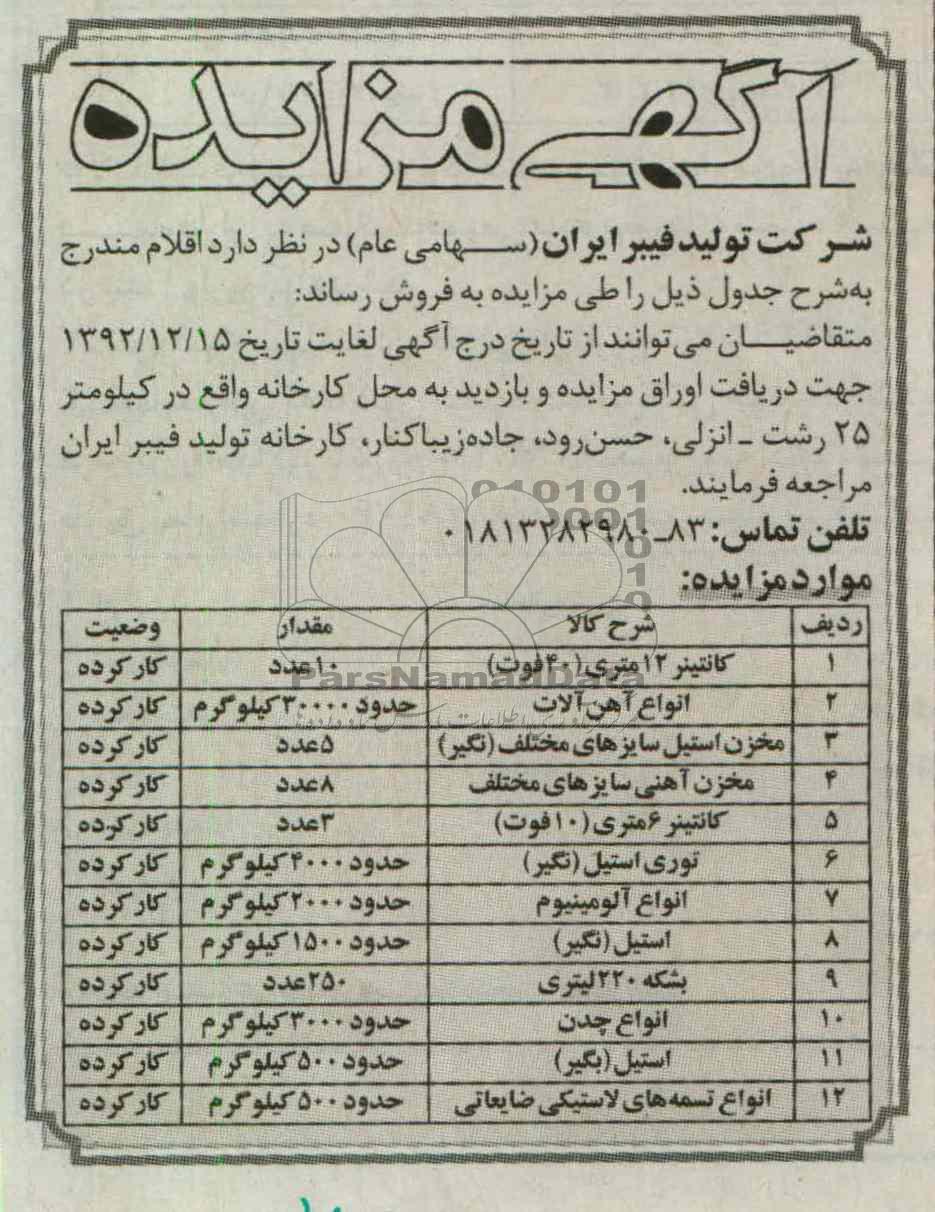 آگهی مزایده
شرکت تولید فیبر ایران (سهامی عام) در نظر دارد اقلام مندرج
به‌شرح جدول ذیل را طی مزایده به فروش رساند:
متقاضیان می‌توانند از تاریخ درج آگهی لغایت تاریخ ۱۳۹۲/۱۲/۱۵
جهت دریافت اوراق مزایده و بازدید به محل کارخانه واقع در کیلومتر
۲۵ رشت ـ انزلی، حسن‌رود، جاده‌زیباکنار، کارخانه تولید فیبر ایران
مراجعه فرمایند.
تلفن تماس: ۸۳ـ۰۱۸۱۳۲۸۲۹۸۰
موارد مزایده:
ردیف شرح کالا مقدار وضعیت
۱ کانتینر ۱۲متری (۴۰فوت) ۱۰عدد کارکرده
۲ انواع آهن‌آلات حدود ۳۰۰۰۰کیلوگرم کارکرده
۳ مخزن استیل سایزهای مختلف (نگیر) ۵عدد کارکرده
۴ مخزن آهنی سایزهای مختلف ۸عدد کارکرده
۵ کانتینر ۶متری (۱۰فوت) ۳عدد کارکرده
۶ توری استیل (نگیر) حدود ۴۰۰۰کیلوگرم کارکرده
۷ انواع آلومینیوم حدود ۲۰۰۰کیلوگرم کارکرده
۸ استیل (نگیر) حدود ۱۵۰۰کیلوگرم کارکرده
۹ بشکه ۲۲۰لیتری ۲۵۰عدد کارکرده
۱۰ انواع چدن حدود ۳۰۰۰کیلوگرم کارکرده
۱۱ استیل (بگیر) حدود ۵۰۰کیلوگرم کارکرده
۱۲ انواع تسمه‌های لاستیکی ضایعاتی حدود ۵۰۰کیلوگرم کارکرده
ParsNamadData